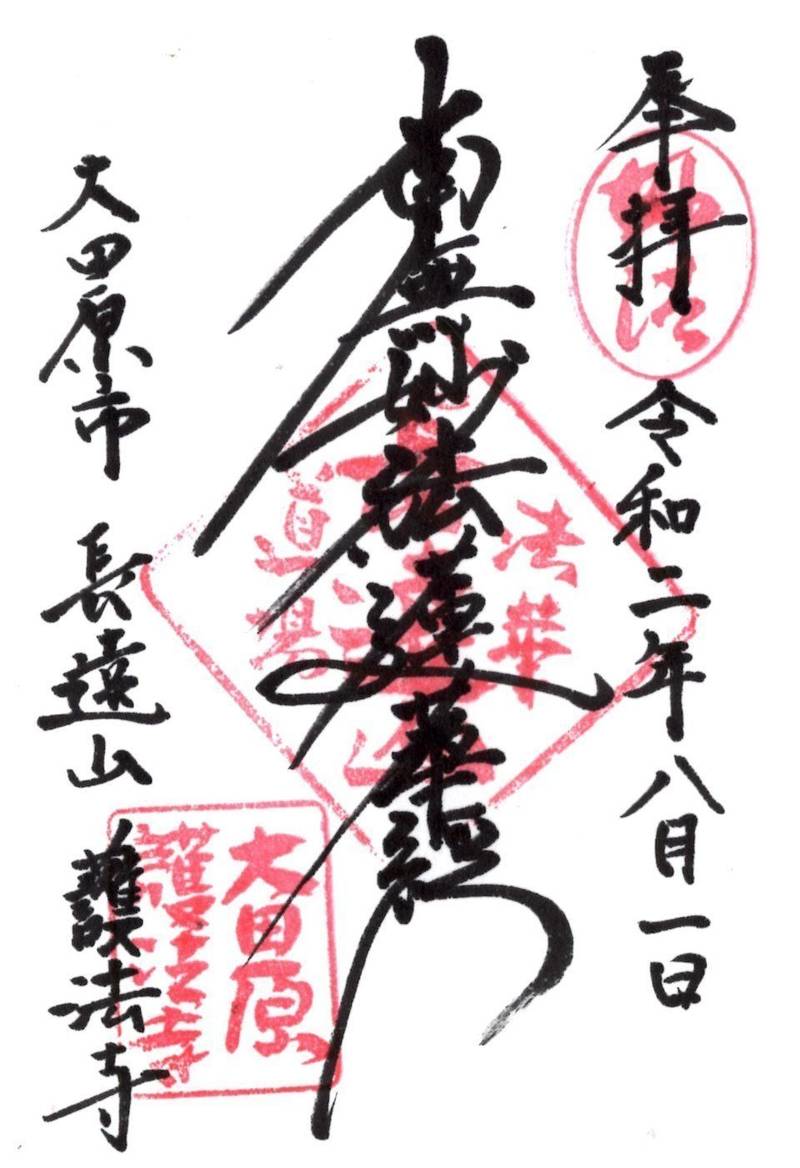 奉拝 令和二年八月一日
妙法
南無妙法蓮華経
法華
道場
大田原市 長遠山 護法寺
大田原
護法寺